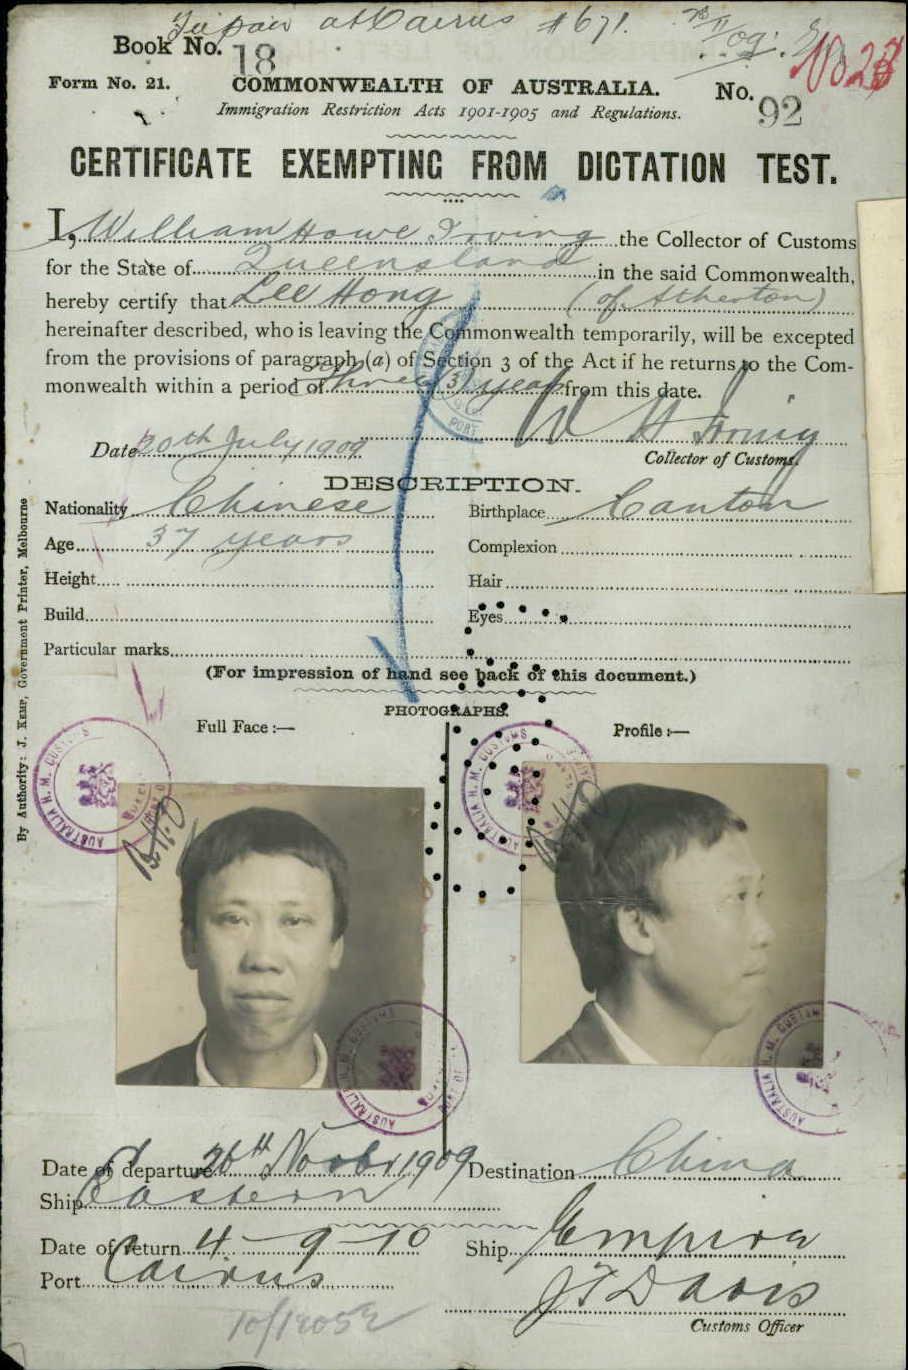 at Cairns #671.
Book No. 18
Form No. 21. COMMONWEALTH OF AUSTRALIA. No. 92
Immigration Restriction Acts 1901-1905 and Regulations.
CERTIFICATE EXEMPTING FROM DICTATION TEST.
I, William Howe Irving the Collector of Customs
for the State of Queensland in the said Commonwealth,
hereby certify that Lee Hong (of Atherton)
hereinafter described, who is leaving the Commonwealth temporarily, will be excepted
from the provisions of paragraph (a) of Section 3 of the Act if he returns to the Com-
monwealth within a period of three (3) years from this date.
W H Irving
Date 20th July 1909
Collector of Customs.
DESCRIPTION.
Nationality Chinese Birthplace Canton
Age 37 years Complexion
Height Hair
Build Eyes
Particular marks
(For impression of hand see back of this document.)
PHOTOGRAPHS.
Full Face :— Profile :—
By Authority: J. KEMP, Government Printer, Melbourne
AUSTRALIA H. M. CUSTOMS
AUSTRALIA H. M. CUSTOMS
AUSTRALIA H. M. CUSTOMS
AUSTRALIA H. M. CUSTOMS
Date of departure 26th Novbr 1909 Destination China
Ship Eastern
Date of return 4-9-10 Ship Empire
Port Cairns J F Davis
Customs Officer